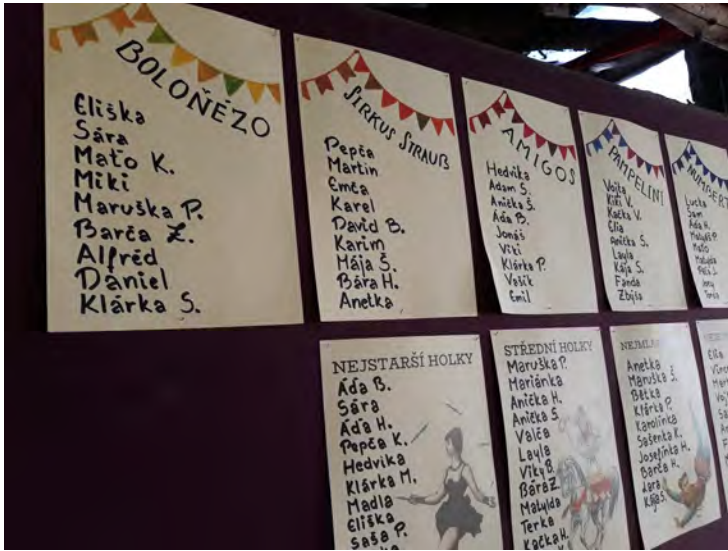 BOLOŇÉZO
Eliška
Sára
Maťo K.
Miki
Maruška P.
Barča Z.
Alfréd
Daniel
Klárka S.
SIRKUS STRAUß
Pepča
Martin
Emča
Karel
David B.
Karim
Mája Š.
Bára H.
Anetka
AMIGOS
Hedvika
Adam S.
Anička Š.
Áďa B.
Jonáš
Viki
Klárka P.
Vašík
Emil
PAMPELINI
Vojta
Kiki V.
Kačka V.
Ella
Anička S.
Layla
Kája S.
Fanda
Zbyša
Lucka
Sam
Áďa H.
Maťo
Matylda
NEJSTARŠÍ HOLKY
Áďa B.
Sára
Áďa H.
Pepča K.
Hedvika
Klárka M.
Madla
Eliška
Saša P.
STŘEDNÍ HOLKY
Maruška P.
Mariánka
Anička H.
Anička S.
Valča
Layla
Viky B.
Bára Z.
Matylda
Terka
Kačka H.
Anetka
Maruška Š.
Betka
Klárka P.
Karolínka
Sašenka K.
Josefínka H.
Barča H.
Lara
Kája S.
Ella